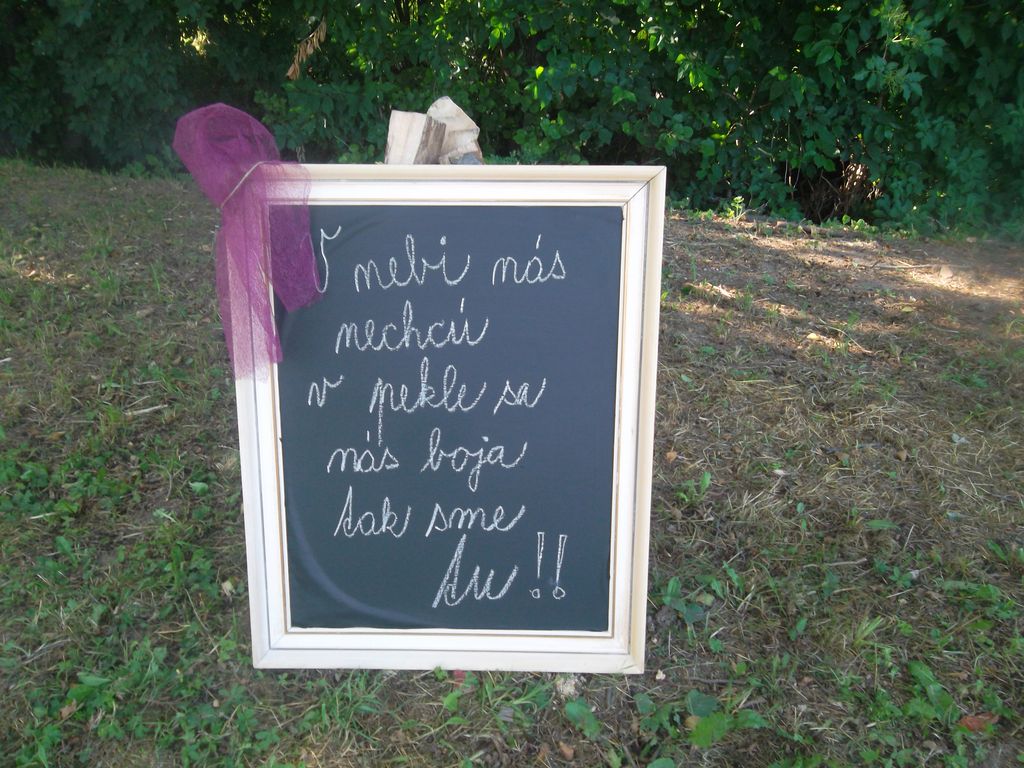 V nebi nás
nechcú
v pekle sa
nás boja
tak sme
tu!!